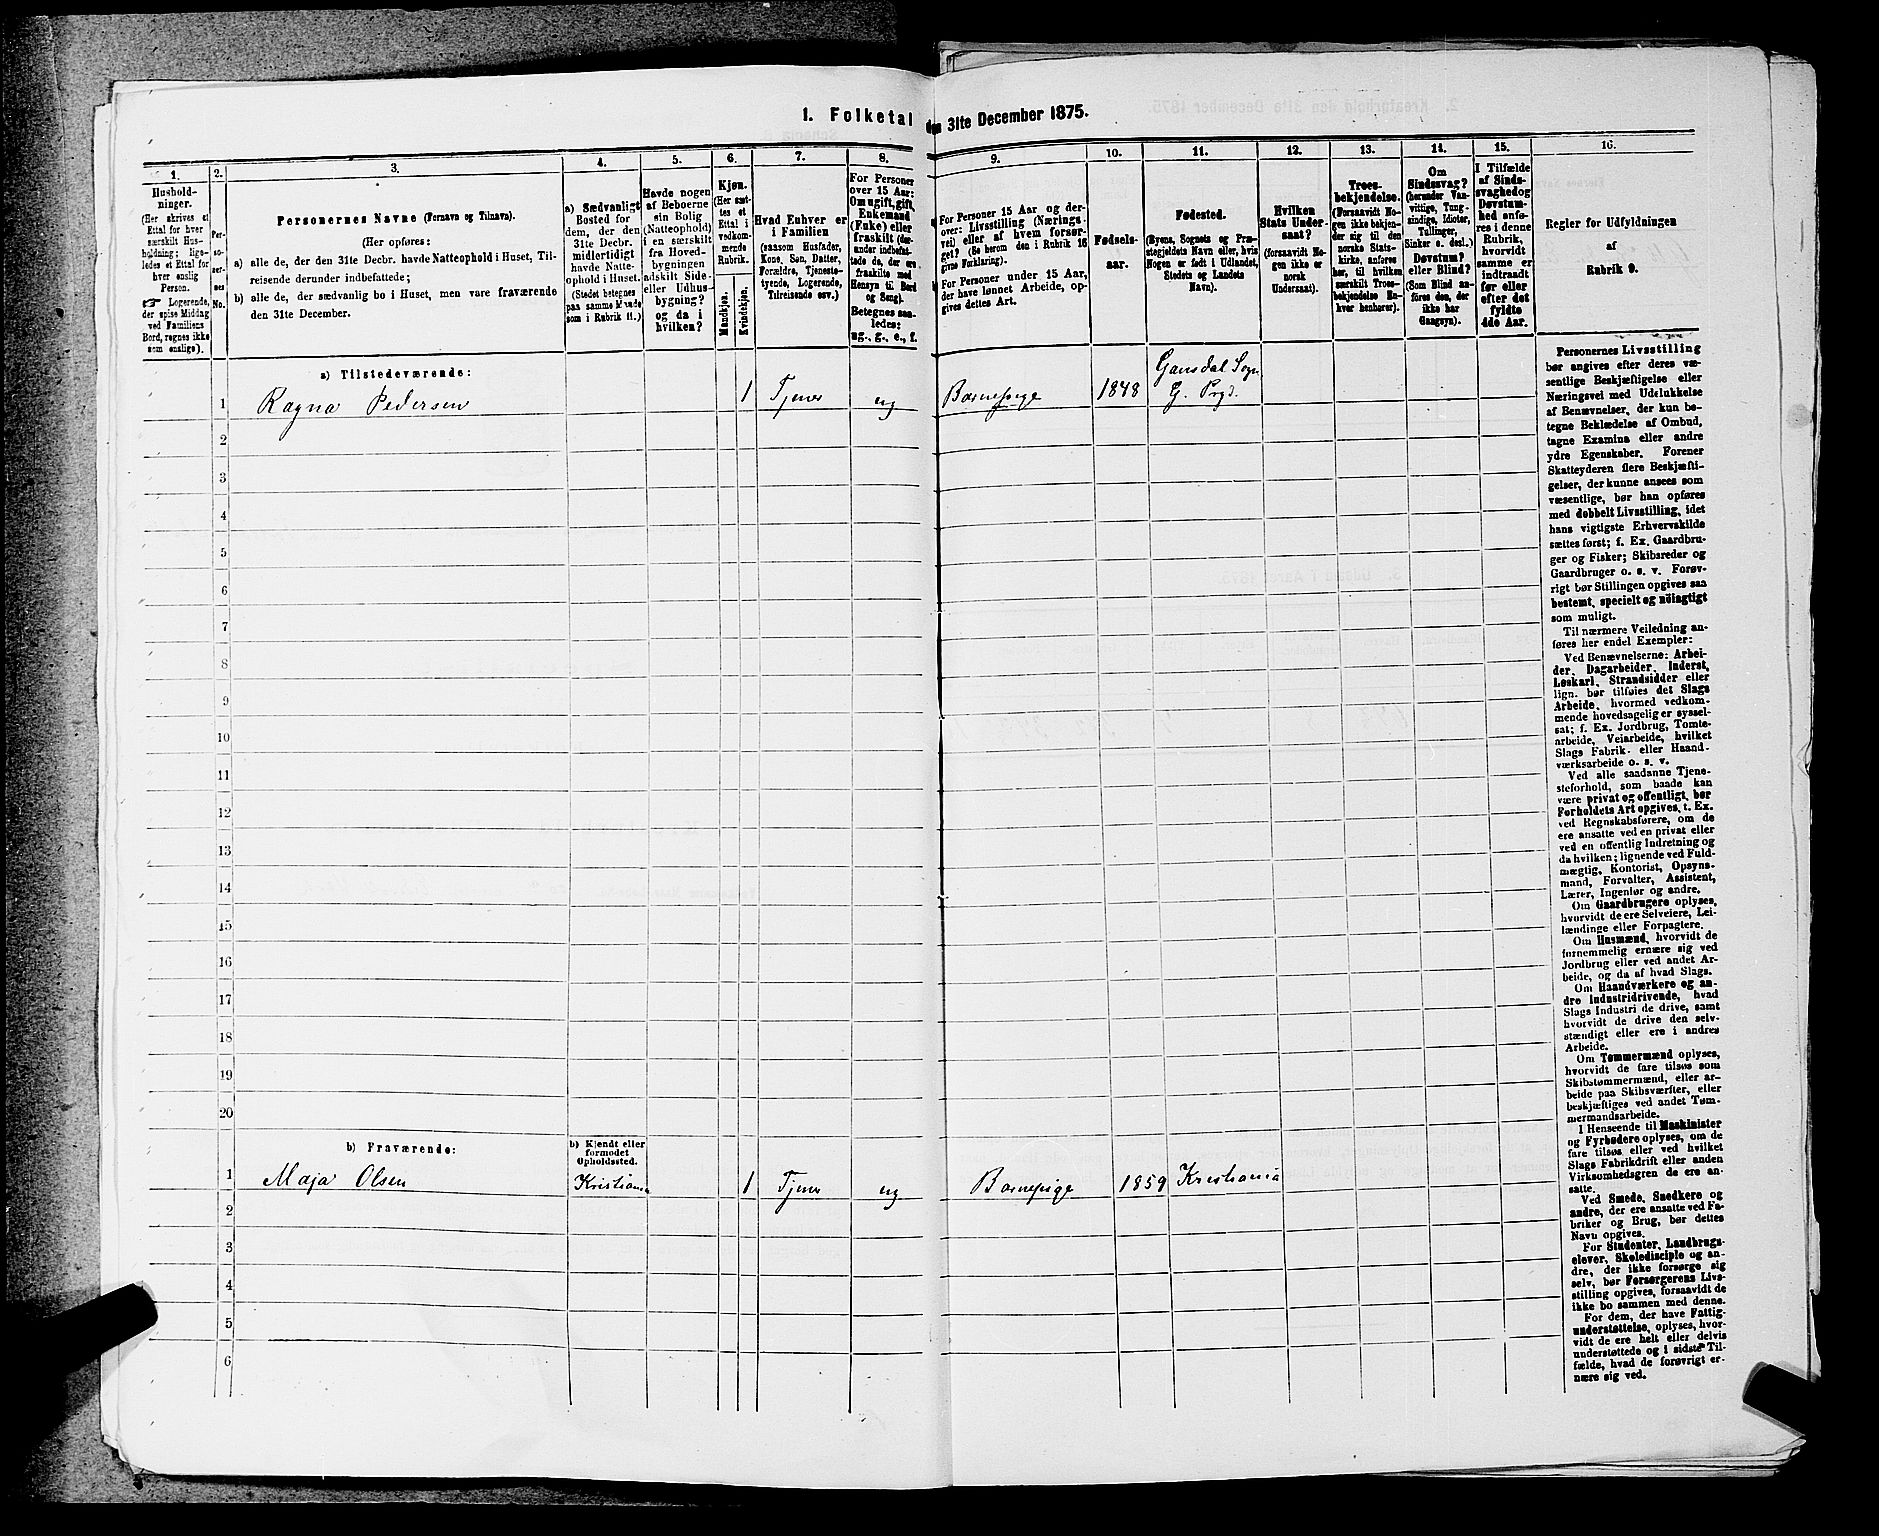 1. Folketal den 31te December 1875.
1.
2.
3.
4.
5.
6.
7.
8.
9.
10.
11.
12.
13.
14.
15.
16.
Hushold-
ninger.
(Her skrives et
Ettal for hver
særskilt Hus-
holdning; lige-
ledes et Ettal for
hver enslig
Person.
☞ Logerende,
der spise Middag
ved Familiens
Bord, regnes ikke
som enslige).
Per-
soner-
nes
No.
Personernes Navne (Fornavn og Tilnavn).
(Her opføres:
a) alle de, der den 31te Decbr. havde Natteophold i Huset, Til-
reisende derunder indbefattede;
b) alle de, der sædvanlig bo i Huset, men vare fraværende
den 31te December.
a) Sædvanligt
Bosted for
dem, der den
31te Decbr.
midlertidigt
havde Natte-
ophold i Huset.
(Stedet betegnes
paa samme Maade
som i Rubrik 11.)
Havde nogen
af Beboerne
sin Bolig
(Natteophold)
i en særskilt
fra Hoved-
bygningen
adskilt Side-
eller Udhus-
bygning?
og da i
hvilken?
Kjøn.
(Her sæt-
tes et
Ettal i
vedkom-
mende
Rubrik.
Mandkjøn.
Kvindekjøn.
Hvad Enhver er
i Familien
(saasom Husfader,
Kone, Søn, Datter,
Forældre, Tjeneste-
tyende, Logerende,
Tilreisende osv.)
For Personer
over 15 Aar:
Om ugift, gift,
Enkemand
(Enke) eller
fraskilt (der-
under indbefat-
tede de, der ere
fraskilte med
Hensyn til Bord
og Seng).
Betegnes saa-
ledes:
ug., g., e., f.
For Personer 15 Aar og der-
over: Livsstilling (Nærings-
vei) eller af hvem forsør-
get? (Se herom den i Rubrik 16
givne Forklaring).
For Personer under 15 Aar,
der have lønnet Arbeide, op-
gives dettes Art.
Fødsels-
aar.
Fødested.
(Byens, Sognets og Præ-
stegjeldets Navn eller, hvis
Nogen er født i Udlandet,
Stedets og Landets
Navn).
Hvilken
Stats Under-
saat?
(forsaavidt No-
gen ikke er
norsk
Undersaat).
Troes-
bekjendelse.
(Forsaavidt No-
gen ikke bekjen-
der sig til den
norske Stats-
kirke, anføres
her, til hvilken
særskilt Troes-
bekjendelse En-
hver henhører).
Om
Sindssvag?
(herunder Van-
vittige, Tung-
sindige, Idioter,
Tullinger,
Sinker o. desl.)
Døvstum?
eller Blind?
(Som Blind an-
føres den, der
ikke har
Gangsyn).
I Tilfælde
af Sinds-
svaghed og
Døvstum-
hed anfø-
res i denne
Rubrik,
hvorvidt
samme er
indtraadt
før eller
efter det
fyldte
4de Aar.
Regler for Udfyldningen
af
Rubrik 9.
a) Tilstedeværende:
1 Ragna Pedersen 1 Tjener ug Barnepige 1848 Gansdal Sogn
G. Prgd.
2
3
4
5
6
7
8
9
10
11
12
13
14
15
16
17
18
19
20
b) Fraværende:
b) Kjendt eller
formodet
Opholdssted.
1 Maja Olsen Kristiania 1 Tjener ug Barnepige 1859 Kristiania
2
3
4
5
6
Personernes Livsstilling
bør angives efter deres væ-
sentlige Beskjæftigelse eller
Næringsvei med Udelukkelse
af Benævnelser, der kun be-
tegne Beklædelse af Ombud,
tagne Examina eller andre
ydre Egenskaber. Forener
Skatteyderen flere Beskjæfti-
gelser, der kunne ansees som
væsentlige, bør han opføres
med dobbelt Livsstilling, idet
hans vigtigste Erhvervskilde
sættes først; f. Ex. Gaardbru-
ger og Fisker; Skibsreder og
Gaardbruger o. s. v. Forøv-
rigt bør Stillingen opgives saa
bestemt, specielt og nöiagtigt
som muligt.
Til nærmere Veiledning an-
føres her endel Exempler:
Ved Benævnelserne: Arbei-
der, Dagarbeider, Inderst,
Løskarl, Strandsidder eller
lign. bør tilføies det Slags
Arbeide, hvormed vedkom-
mende hovedsagelig er syssel-
sat; f. Ex. Jordbrug, Tomte-
arbeide, Veiarbeide, hvilket
Slags Fabrik- eller Haand-
værksarbeide o. s. v.
Ved alle saadanne Tjene-
steforhold, som baade kan
være privat og offentligt, bør
Forholdets Art opgives, t. Ex.
ved Regnskabsførere, om de
ere ansatte ved en privat eller
ved en offentlig Indretning og
da hvilken; lignende ved Fuld-
mægtig, Kontorist, Opsyns-
mand, Forvalter, Assistent,
Lærer, Ingeniør og andre.
Om Gaardbrugere oplyses,
hvorvidt de ere Selveiere, Lei-
lændinge eller Forpagtere.
Om Husmænd, hvorvidt de
fornemmelig ernære sig ved
Jordbrug eller ved andet Ar-
beide, og da af hvad Slags.
Om Haandværkere og an-
dre Industridrivende, hvad
Slags Industri de drive, samt
hvorvidt de drive den selv-
stændigt eller ere i andres
Arbeide.
Om Tømmermænd oplyses,
hvorvidt de fare tilsøs som
Skibstømmermænd, eller ar-
beide paa Skibsværfter, eller
beskjæftiges ved andet Tøm-
mermandsarbeide.
I Henseende til Maskinister
og Fyrbødere oplyses, om de
fare tilsøs eller ved hvilket
Slags Fabrikdrift eller anden
Virksomhedsgren de ere an-
satte.
Ved Smede, Snedkere og
andre, der ere ansatte ved Fa-
briker og Brug, bør dettes
Navn opgives.
For Studenter, Landbrugs-
elever, Skoledisciple og an-
dre, der ikke forsørge sig
selv, bør Forsørgerens Livs-
stilling opgives, forsaavidt de
ikke bo sammen med denne.
For dem, der have Fattig-
understøttelse, oplyses, hvor-
vidt de ere helt eller delvis
understøttede og i sidste Til-
fælde, hvad de forøvrigt er-
nære sig ved.